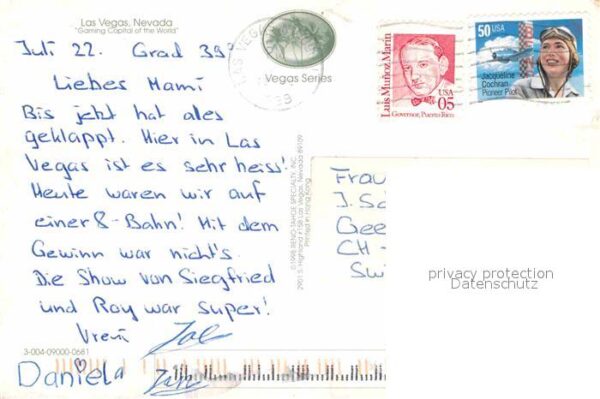 Las Vegas, Nevada
"Gaming Capital of the World"
Juli 22. Grad 39°
Liebes Mami
Bis jeht hat ales
geklappt. Hier in Las
Vegas ist es sehr heiss!
Heute waren wir auf
einer 8-Bahn! Mit dem
Gewinn war nicht's.
Die Show von Siegfried
und Roy war super!
Vreni
Daniela
3-004-09000-0681
Vegas Series
LAS VEGAS
©1998 RENO-TAHOE SPECIALTY, INC.
2901 S. Highland #15B Las Vegas, Nevada 89109
Printed in Hong Kong
Luis Muñoz Marín
USA
05
Governor, Puerto Rico
50 USA
Jacqueline
Cochran
Pioneer Pilot
Frau
J. Sc
Gee
CH-
Swi
privacy protection
Datenschutz